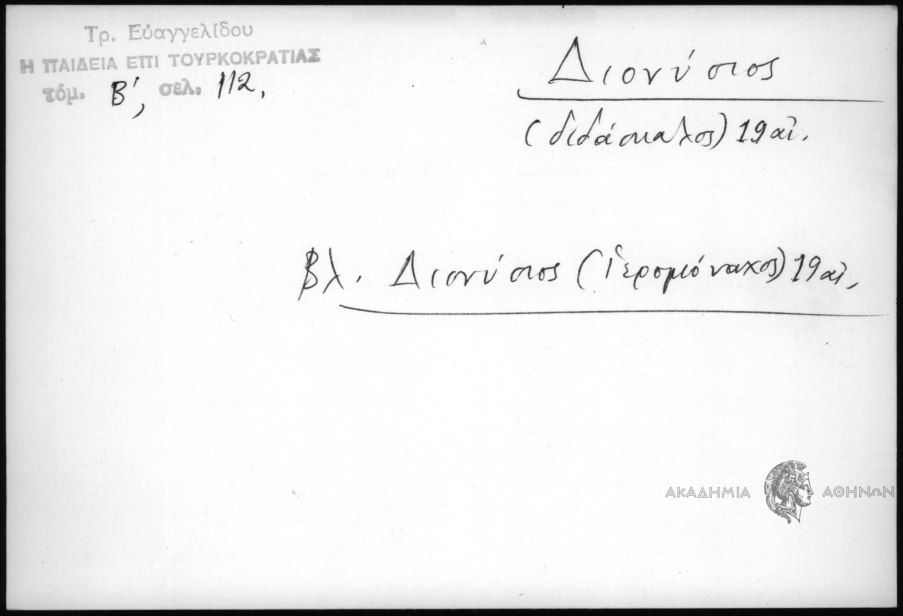 Τρ. Εὐαγγελίδου
Η ΠΑΙΔΕΙΑ ΕΠΙ ΤΟΥΡΚΟΚΡΑΤΙΑΣ
τόμ. Β', σελ. 112.
Διονύσιος
(διδάσκαλος) 19 αἰ.
βλ. Διονύσιος (Ἱερομόναχος) 19 αἰ.
ΑΚΑΔΗΜΙΑ ΑΘΗΝΩΝ